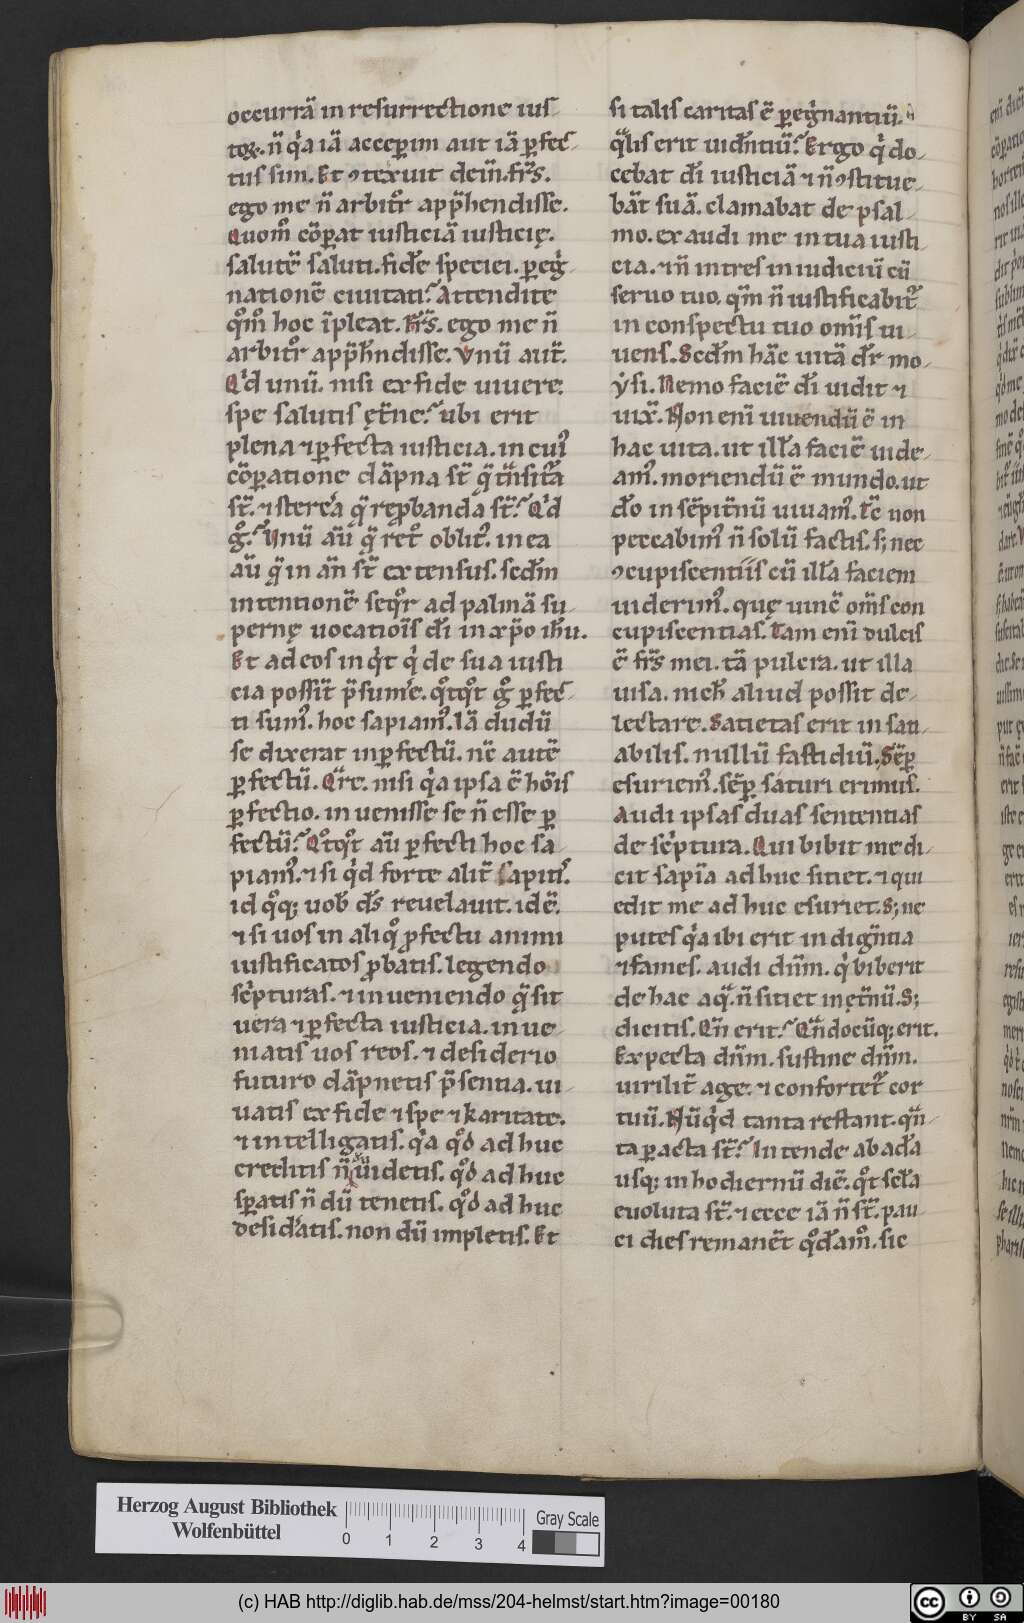 occurrā in resurrectione ius
toꝝ. n̄ qͥa iā acceꝑim aut iā ꝑfec
tus sim. Et ꝯtexuit dein̄. fr̄s.
ego me n̄ arbitͦr app̄hendisse.
Quomͦ cōꝑat iusticiā iusticię.
salutē saluti. fidē speciei. ꝑegͥ
nationē ciuitati. Attendite
qͦmͦ hoc īpleat. Fr̄s. ego me n̄
arbitͦr app̄hn̄disse. Vnū aut̄.
Qͥd unū. nisi ex fide uiuere
spe salutis ęt̄ne. ubi erit
plena ⁊ ꝑfecta iusticia. in cuiꝰ
cōꝑatione dāpna st̄ q̄ tn̄sit̄a
st̄. ⁊ stercͥa q̄ rep̱banda st̄. Qͥd
gͦ. Vnū aū q̄ retͦ oblitꝰ. in ea
aū q̄ in an̄ st̄ extensus. scd̄m
intentionē seqͦr ad palmā su
pernę uocatiōis dī in xp̄o ih̄u.
Et ad eos inqͥt qͥ de sua iusti
cia possit̄ p̄sumͥe. qͦtqͦt gͦ ꝑfec
ti sumꝰ. hoc sapiamꝰ. Iā dudū
se dixerat inꝑfectū. nē autē
ꝑfectū. Qͣre. nisi qͥa ipsa ē hōis
ꝑfectio. inuenisse se n̄ esse ꝑ
fectū. Qͦtqͦt aū ꝑfecti hoc sa
piamꝰ. ⁊ si qͥd forte alit̄ sapitiꝰ.
id qͦq; uob̄ ds̄ reuelauit. idē.
⁊ si uos in aliqͦ ꝓfectu animi
iustificatos ꝓbatis. legendo
scͥpturas. ⁊ inueniendo q̄ sit
uera ⁊ ꝑfecta iusticia. inue
niatis uos reos. ⁊ desiderio
futuro dāpnetis p̄sentia. ui
uatis ex fide ⁊ spe ⁊ karitate.
⁊ intelligatis. qͥa qͦd adhuc
creditis n̄dū uidetis. qͦd adhuc
sꝑatis n̄ dū tenetis. qͦd adhuc
desidͥatis. non dū impletis. Et
si talis caritas ē ꝑegͥnantiū.
qͣlis erit uidn̄tiū. Ergo qͥ do
cebat dī iusticiā ⁊ n̄ ꝯstitue
bat̄ suā. clamabat de psal
mo. exaudi me in tua iusti
cia. ⁊ n̄ intres in iudiciū cū
seruo tuo. qm̄ n̄ iustificabit̄
in conspectu tuo om̄is ui
uens. Scd̄m hāc uitā dr̄ mo
ẏsi. Nemo faciē dī uidit ⁊
uix̄. Non enī uiuendū ē in
hac uita. ut illā faciē uide
amꝰ. moriendū ē mundo. ut
dō in sēpit̄nū uiuamꝰ. Tc̄ non
peccabimꝰ n̄ solū factis. s; nec
ꝯcupiscentiis cū illā faciem
uiderimꝰ. quę uincē om̄s con
cupiscentias. Tam enī dulcis
ē fr̄s mei. tā pulcra. ut illa
uisa. nich̄ aliud possit de
lectare. Satietas erit insati
abilis. nullū fastidiū. Sēꝑ
esuriemꝰ. sēꝑ saturi erimus.
Audi ipsas duas sententias
de scͥptura. Qui bibit me di
cit sapīa adhuc sitiet. ⁊ qui
edit me adhuc esuriet. S; ne
putes qͥa ibi erit indign̄tia
⁊ fames. audi dn̄m. qͥ biberit
de hac aqͣ. n̄ sitiet in ęt̄nū. S;
dicitis. Qn̄ erit. Qn̄docūq; erit.
Expecta dn̄m. sustine dn̄m.
uirilit̄ age. ⁊ confortet̄ cor
tuū. Nūqͥd tanta restant. qn̄
ta ꝑacta st̄. Intende ab adā
usq; in hodiernū diē. qͦt sclā
euoluta st̄. ⁊ ecce iā n̄ st̄. pau
ci dies remanēt qͦdāmͦ. sic
Herzog August Bibliothek
Wolfenbüttel
0 1 2 3 4
Gray Scale
(c) HAB http://diglib.hab.de/mss/204-helmst/start.htm?image=00180
cc BY SA